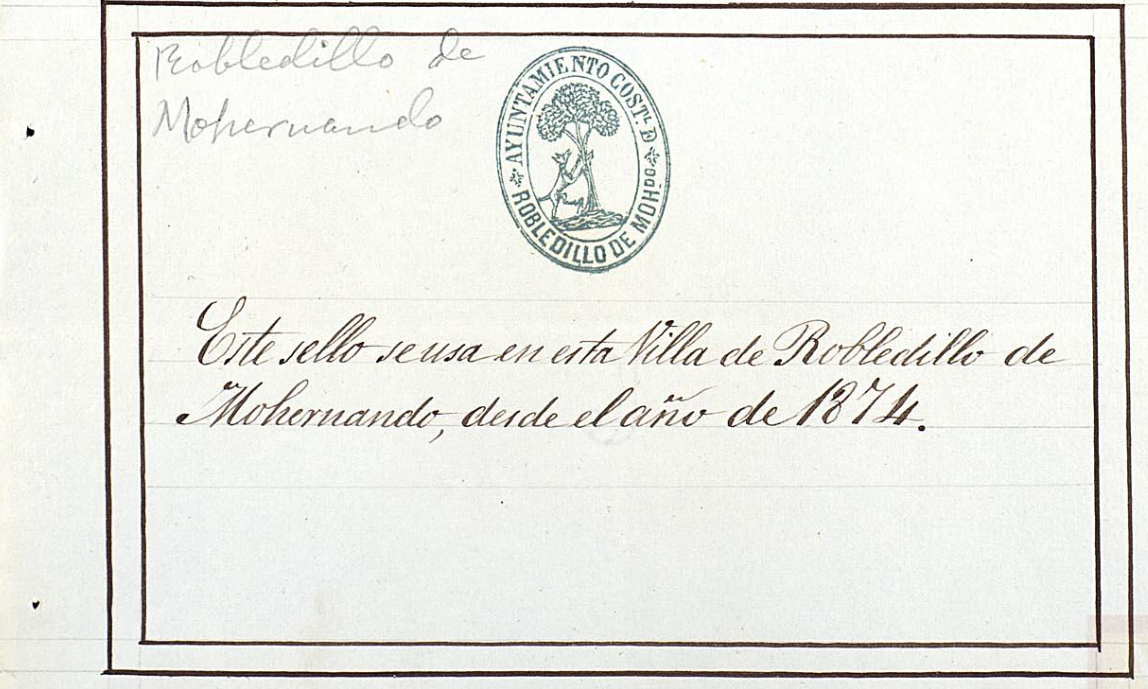 Robledillo de
Mohernando
AYUNTAMIENTO COSTL. D
ROBLEDILLO DE MOHDO.
Este sello se usa en esta Villa de Robledillo de
Mohernando, desde el año de 1874.